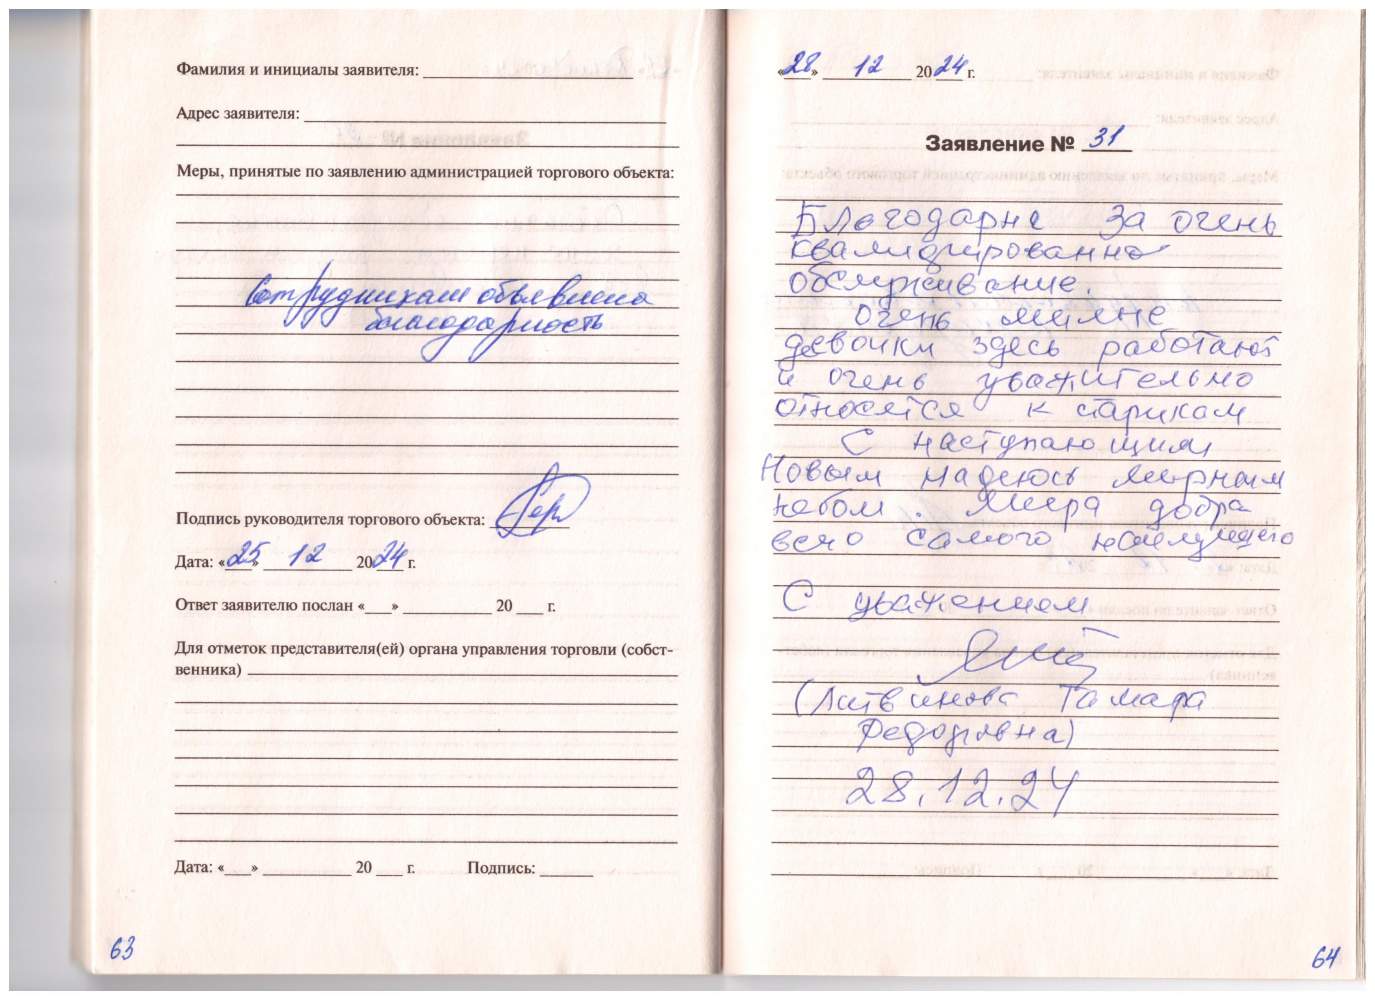 Фамилия и инициалы заявителя:
Адрес заявителя:
Меры, принятые по заявлению администрацией торгового объекта:
Сотрудникам объявлена
благодарность
Подпись руководителя торгового объекта:
Дата: «25» 12 2024 г.
Ответ заявителю послан «___» ______ 20 ___ г.
Для отметок представителя(ей) органа управления торговли (собст-
венника)
Дата: «___» ______ 20 ___ г. Подпись: ______
63
«28» 12 2024 г.
Заявление № 31
Благодарне за очень
квалифированно
обслуживание.
Очень милые
девочки здесь работают
и очень уважительно
относятся к старикам
С наступающим
Новым надеюсь мирным
небом. Мира добра
всего самого наилучшего
С уважением
(Литвинова Тамара
Федоровна)
28.12.24
64